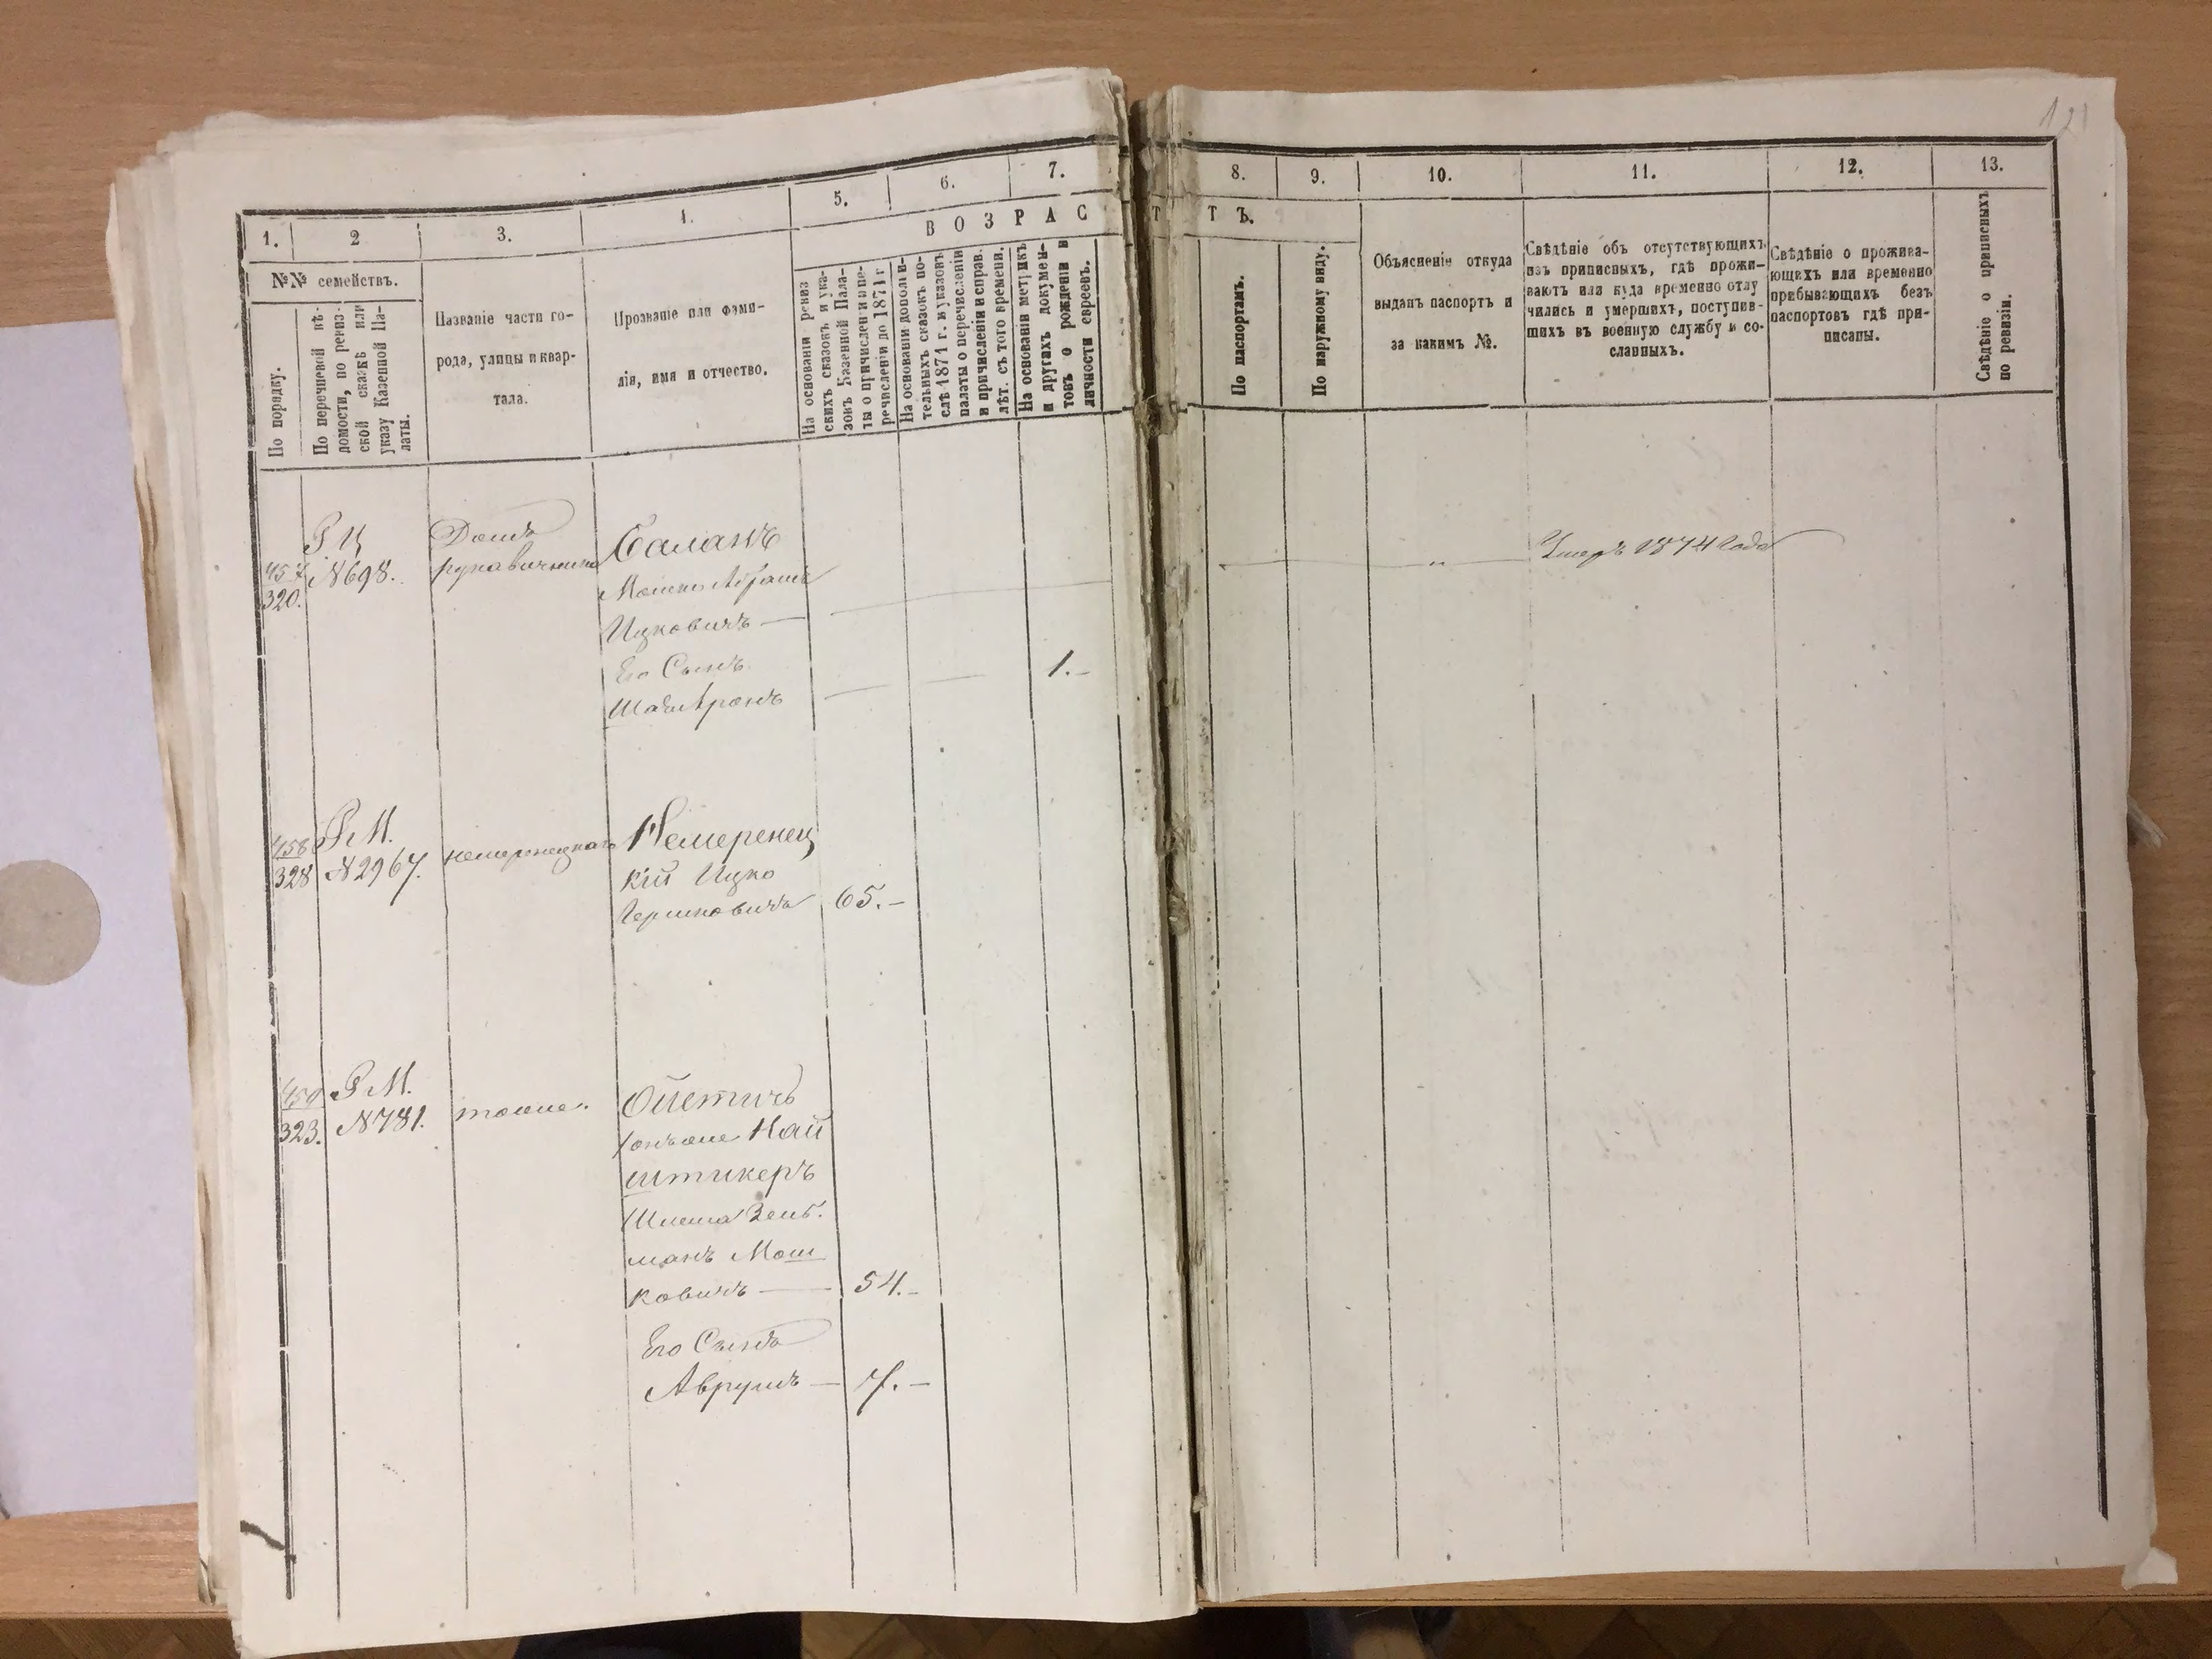 121
1.
2
3.
4.
5.
6.
7.
8.
9.
10.
11.
12.
13.
№№ семействъ.
ВОЗРАС
ТЪ.
По порядку.
По перечневой вѣ-
домости, по ревиз-
ской сказкѣ или
указу Казенной Па-
латы.
Названіе части го-
рода, улицы и квар-
тала.
Прозваніе или фами-
лія, имя и отчество.
На основаніи ревиз
скихъ сказокъ и ука-
зовъ Казенной Пала-
ты о причисленіи и пе-
речисленіи до 1871 г
На основаніи дополни-
тельныхъ сказокъ по-
слѣ 1871 г. и указовъ
палаты о перечисленіи
и причисленіи и справ.
лѣт. съ того времени.
На основаніи метрикъ
и другахъ докумен-
товъ о рожденіи и
личности евреевъ.
По паспортамъ.
По наружному виду.
Объясненіе откуда
выданъ паспортъ и
за какимъ №.
Свѣдѣніе объ отсутствующихъ
изъ приписныхъ, гдѣ прожи-
ваютъ или куда временно отлу
чились и умершихъ, поступив-
шихъ въ военную службу и со-
сланныхъ.
Свѣдѣніе о прожива-
ющихъ или временно
прибывающихъ безъ
паспортовъ гдѣ при-
писаны.
Свѣдѣніе о приписныхъ
по ревизіи.
457
320.
Р. Ц
№698.
Домъ
рукавичника
Баланъ
Мошко Абрамъ
Ицковичъ —
Его Сынъ
Шая Аронъ
1.-
Умеръ 1874 Года
458
328
Р М.
№2967.
немеренецкаго
Немеренец
кій Ицко
Гершковичъ 65.-
459
323.
Р М.
№781.
тоже.
Ойстичъ
онъ же Най
штикеръ
Шлема Зель-
манъ Мош
ковичъ — 54.-
Его Сынъ
Аврумъ — 7.-